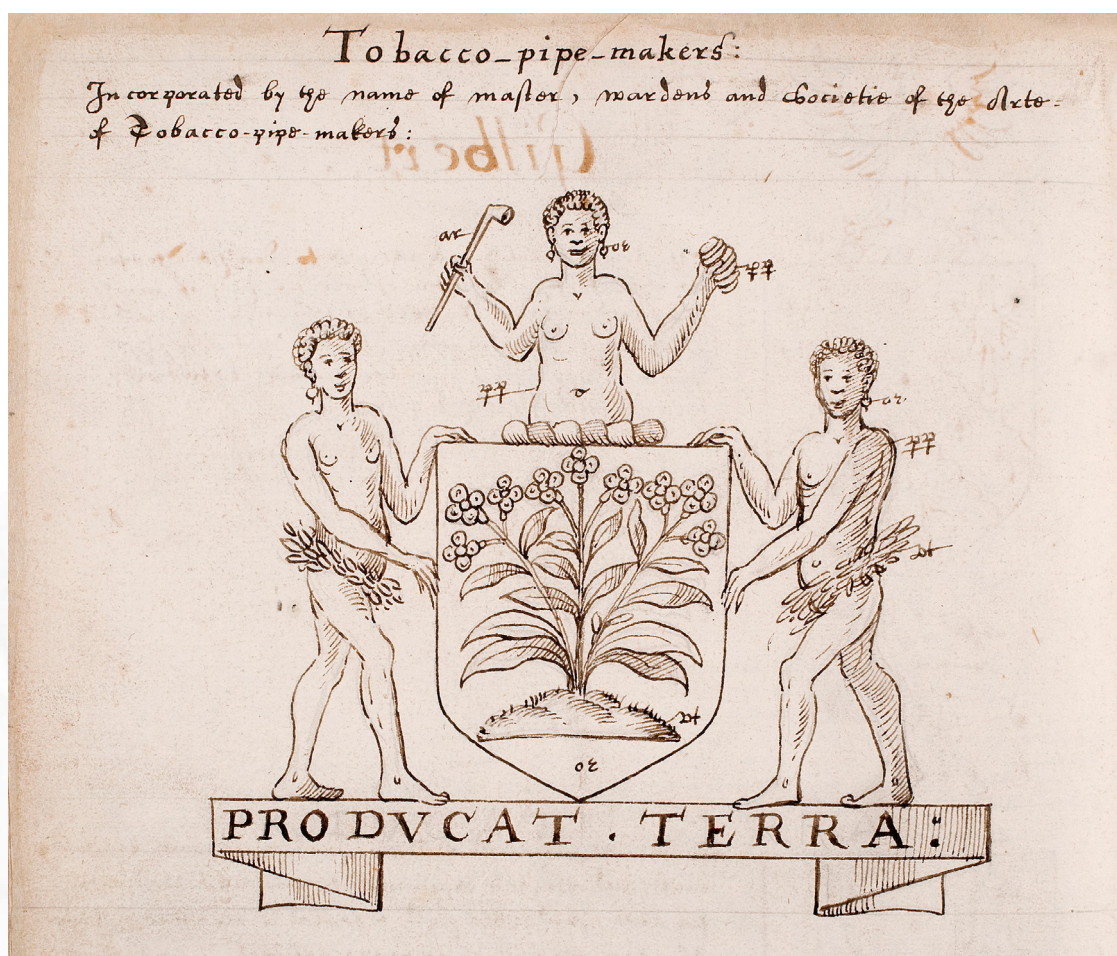 Tobacco-pipe-makers:
Incorporated by the name of master, wardens and Societie of the Arte-
of Tobacco-pipe-makers:
Gilbert
ar
or
pp
pp
or
pp
vt
vt
or
PRODVCAT . TERRA: